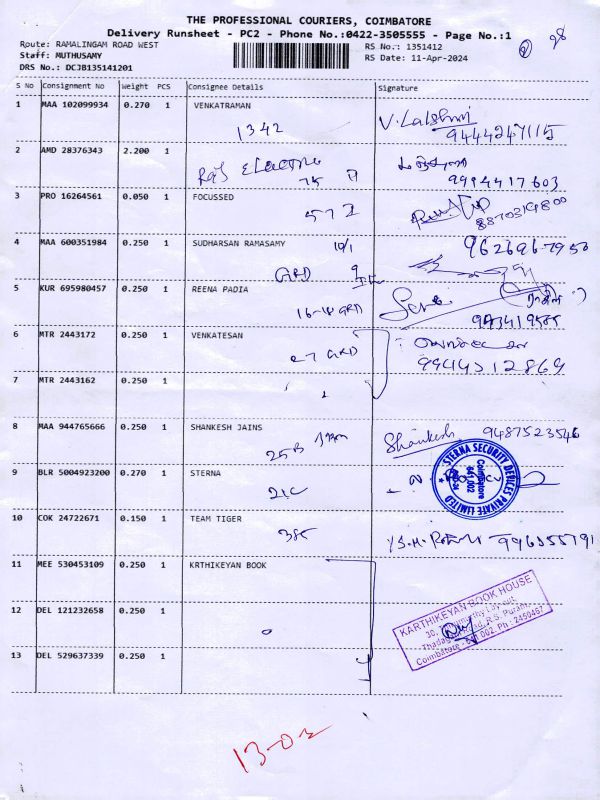 THE PROFESSIONAL COURIERS, COIMBATORE
Delivery Runsheet - PC2 - Phone No.:0422-3505555 - Page No.:1
Route: RAMALINGAM ROAD WEST
Staff: MUTHUSAMY
DRS No.: DCJB135141201
RS No.: 1351412
RS Date: 11-Apr-2024
S No Consignment No Weight PCS Consignee Details Signature
1 MAA 102099934 0.270 1 VENKATRAMAN
1342
V. Lakshmi
9444247115
2 AMD 28376343 2.200 1
9994417603
3 PRO 16264561 0.050 1 FOCUSSED
4 MAA 600351984 0.250 1 SUDHARSAN RAMASAMY 10/1
GRD
5 KUR 695980457 0.250 1 REENA PADIA
16-18 GRD
6 MTR 2443172 0.250 1 VENKATESAN
27 GRD
7 MTR 2443162 0.250 1
8 MAA 944765666 0.250 1 SHANKESH JAINS
25B
Shankesh 9487523546
9 BLR 5004923200 0.270 1 STERNA
21C
STERNA SECURITY DEVICES PRIVATE LIMITED
Coimbatore
641 002
10 COK 24722671 0.150 1 TEAM TIGER
11 MEE 530453109 0.250 1 KRTHIKEYAN BOOK
12 DEL 121232658 0.250 1
13 DEL 529637339 0.250 1
KARTHIKEYAN BOOK HOUSE
R.S. Puram,
Coimbatore - 641 002. Ph : 2450467
13-02